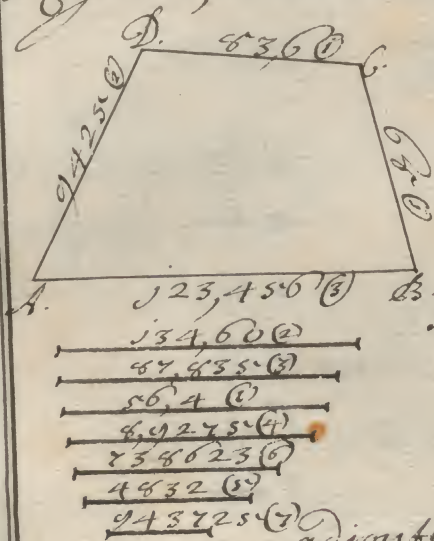 D.
83,6 ①
C.
9425 ②
68 ①
A.
123,456 ③
B.
134,60 ②
87,835 ③
56,4 ①
8,9275 ④
738623 ⑥
4832 ⑤
943725 ⑦